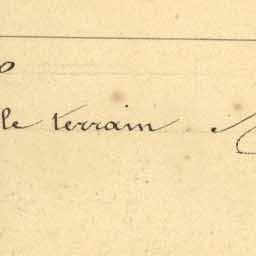 le terrain